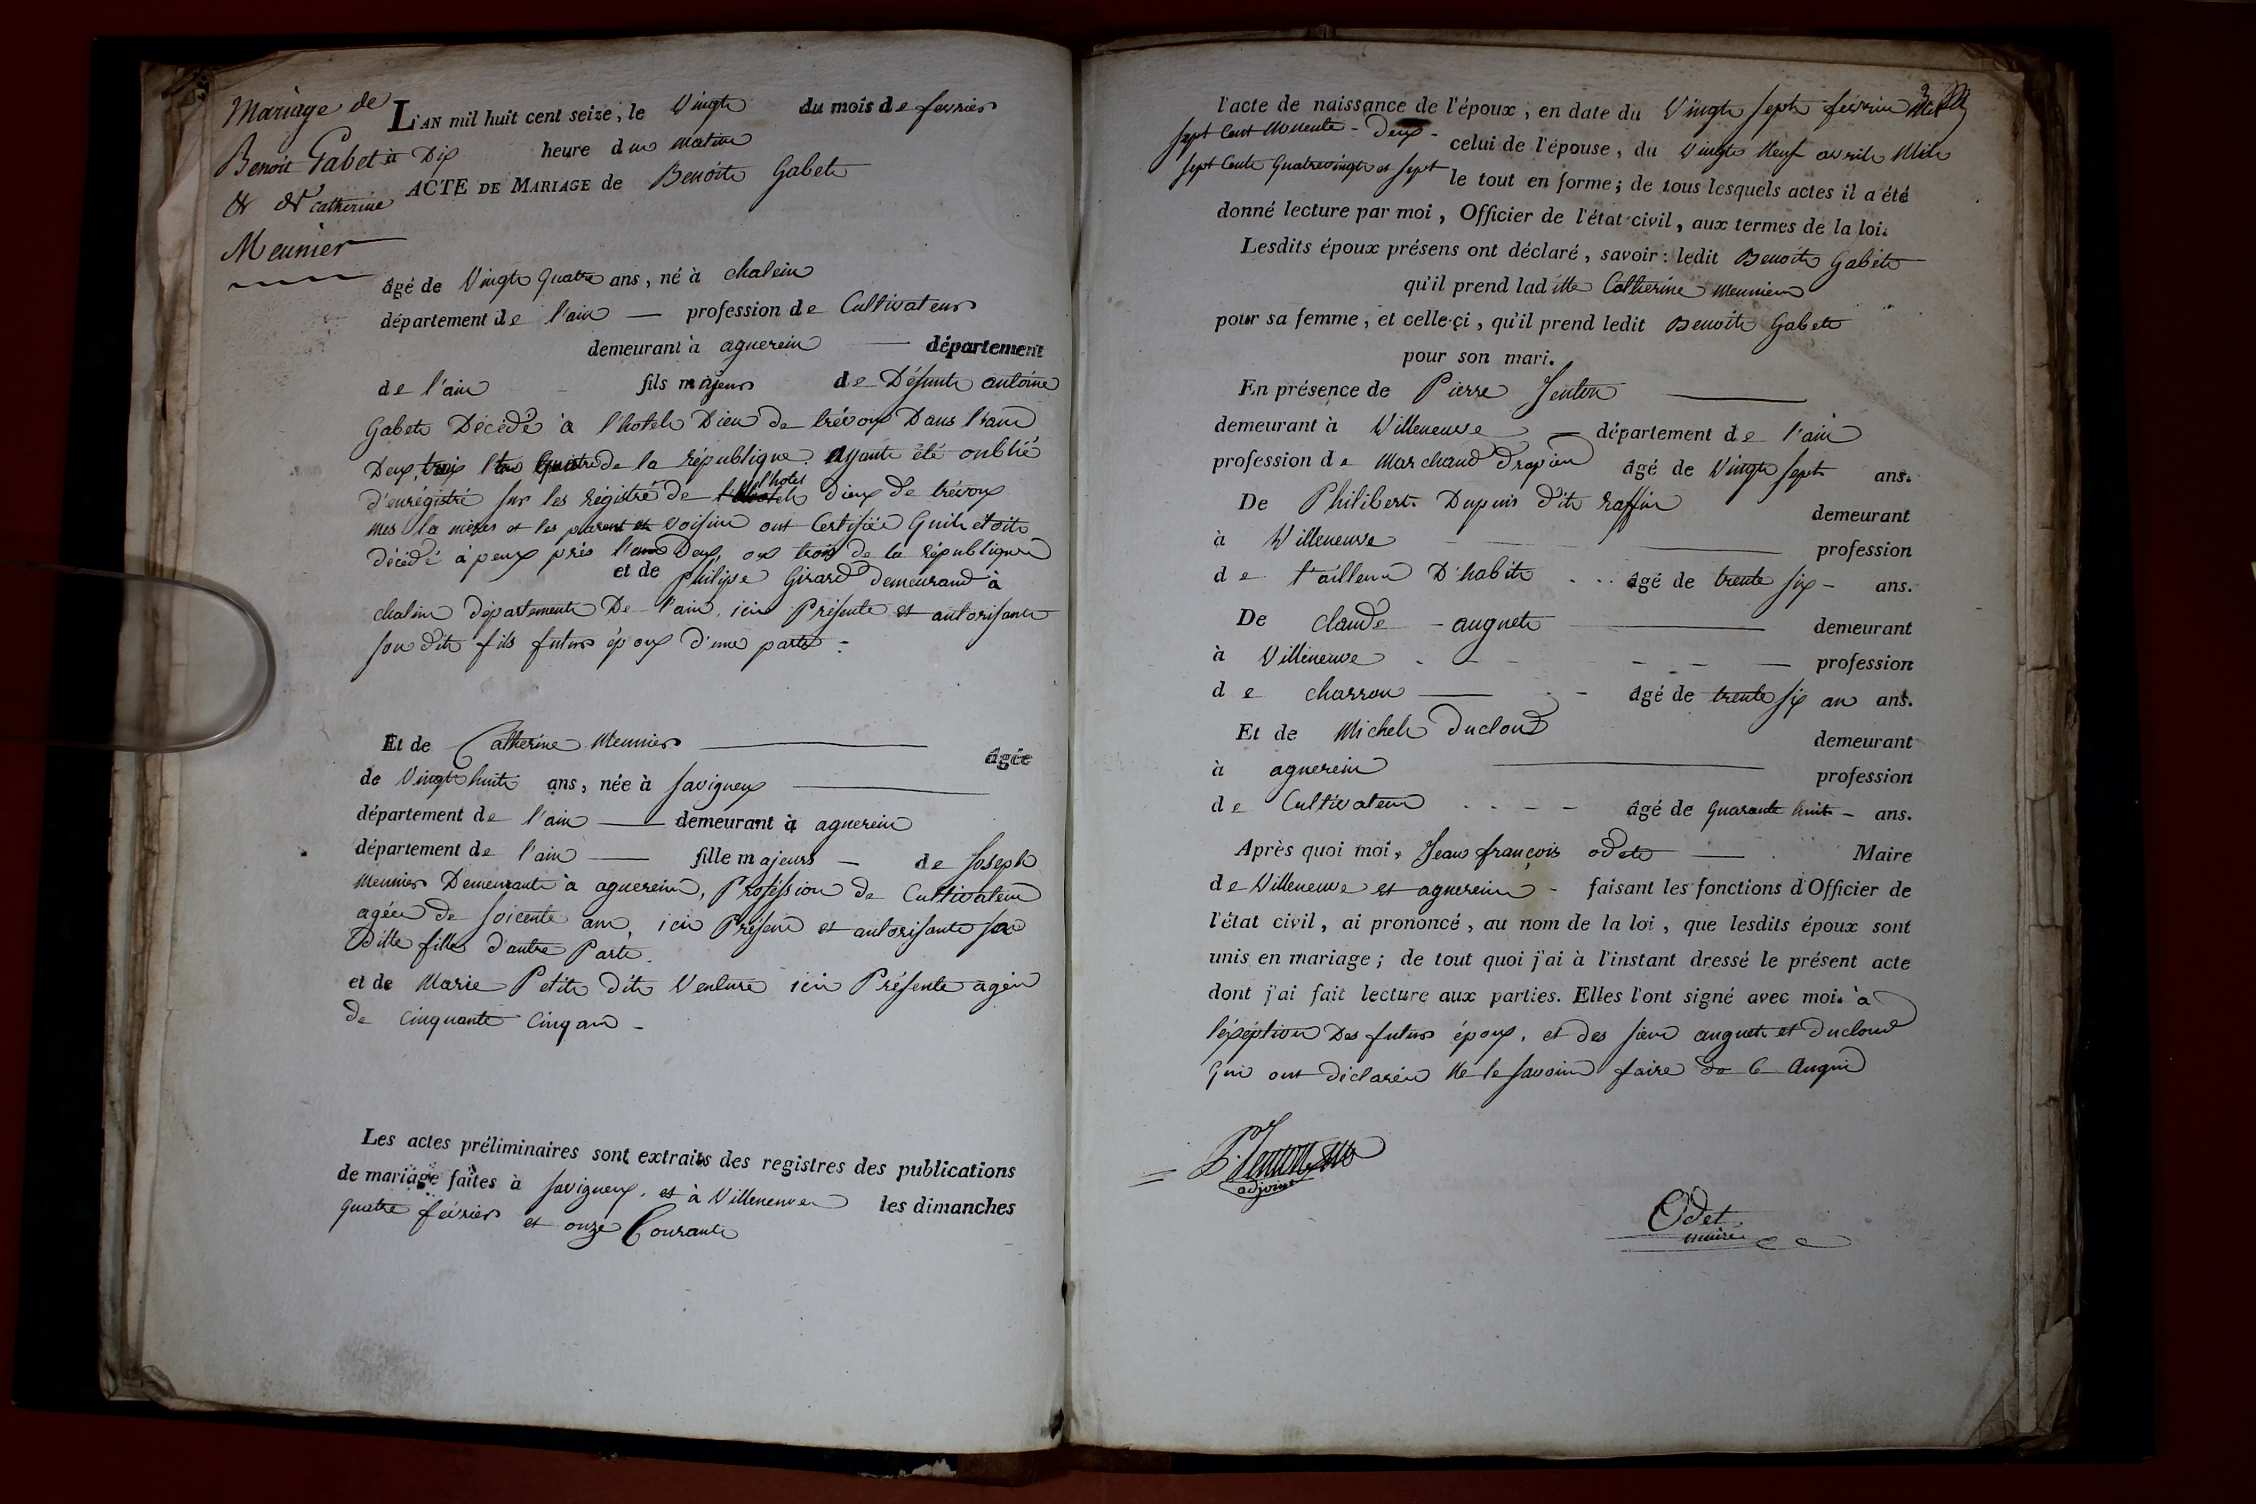 Mariage de
Benoit Gabet
& & Catherine
Meunier
L'AN mil huit cent seize, le Vingt du mois de fevrier
à Dix heure du matin
ACTE DE MARIAGE de Benoit Gabet
âgé de Vingt quatre ans, né à chalein
département de l'ain — profession de Cultivateur
demeurant à aguerein — département
de l'ain fils majeur de Défunt antoine
Gabet Décédé à l'hotel Dieu de trévoux Dans l'an
Deux, trois de la république. Ayant été oublié
d'enrégistré sur les régistré de l'hotel dieux de trévoux
mes la mères et les voisin ont Certifiée quil etoit
décédé à peux près l'an Deux, ou trois de la république
et de philipe Girard demeurand à
chalin département De l'ain, ici Présente et autorisant
son dit fils futur époux d'une part
Et de Catherine Meunier — âgée
de Vingt huit ans, née à Savigneux
département de l'ain — demeurant à aguerein
département de l'ain — fille majeur — de Joseph
Meunier Demeurant à aguerein, Proféssion de Cultivateur
agée de soicente ans, ici Présent et autorisant sa
Ditte fille d'autre Part.
et de Marie Petit dit Venture ici Présente agée
de cinquante cinq an
Les actes préliminaires sont extraits des registres des publications
de mariage faites à Savigneux, et à Villeneuve les dimanches
quatre fevrier et onze Courant
l'acte de naissance de l'époux, en date du Vingt sept fevrier
sept Cent Nonente-Deux - celui de l'épouse, du Vingt Neuf avril Mil
sept Cent Quatrevingt et sept le tout en forme; de tous lesquels actes il a été
donné lecture par moi, Officier de l'état civil, aux termes de la loi.
Lesdits époux présens ont déclaré, savoir: ledit Benoit Gabet
qu'il prend laditte Catherine Meunier
pour sa femme, et celle-çi, qu'il prend ledit Benoit Gabet
pour son mari.
En présence de Pierre Jenton
demeurant à Villeneuve — département de l'ain
profession de Marchand Drapier âgé de Vingt sept ans.
De Philibert Dupuis d'it raffin demeurant
à Villeneuve — profession
de tailleur D'habit âgé de trente six - ans.
De claude auguet demeurant
à Villeneuve — profession
de charron — âgé de trente six an ans.
Et de Michel Ducloud demeurant
à aguerein — profession
de Cultivateur âgé de quarante huit - ans.
Après quoi moi, Jean françois odet — Maire
de Villeneuve et aguerein - faisant les fonctions d'Officier de
l'état civil, ai prononcé, au nom de la loi, que lesdits époux sont
unis en mariage; de tout quoi j'ai à l'instant dressé le présent acte
dont j'ai fait lecture aux parties. Elles l'ont signé avec moi. à
l'éxéption Des futurs époux, et des sieur auguet et ducloud
qui ont déclarée Ne le savoir faire de Ce Enquis
P. Jenton
adjoint
Odet
maire